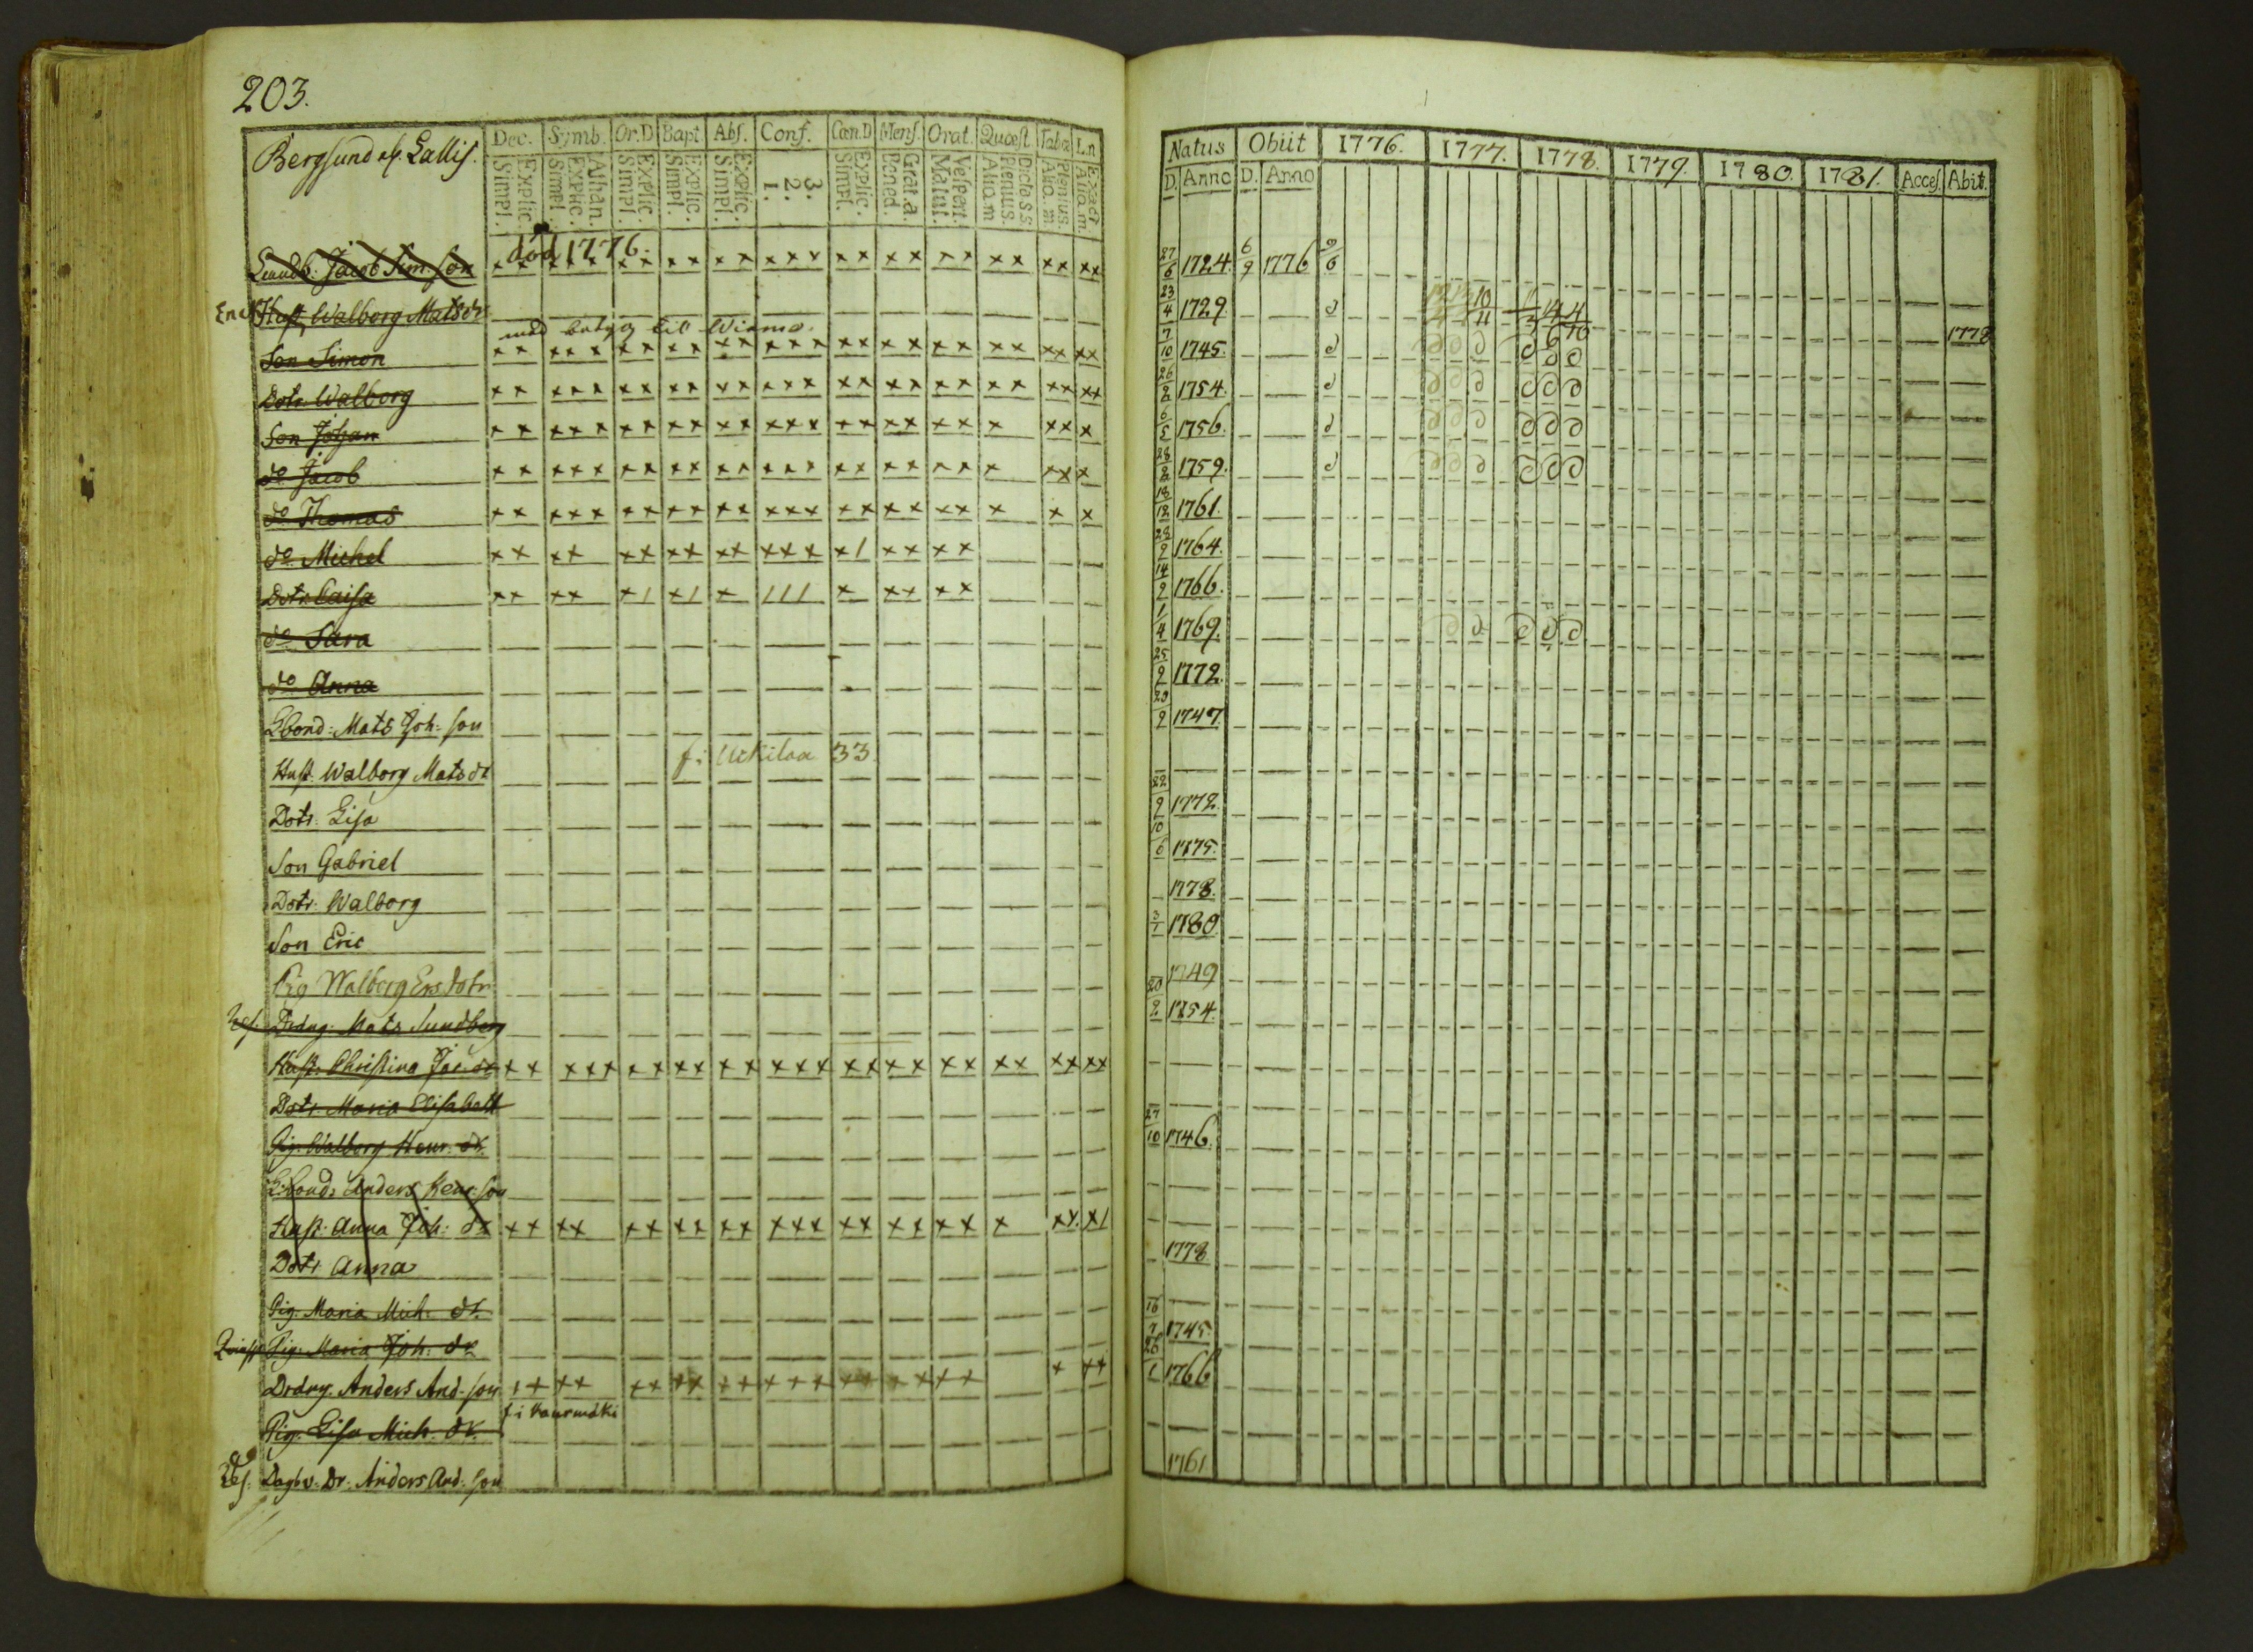 203.
Bergsund el. Lallis.
Dec. Symb. Or.D Bapt Abs. Conf. Cœn.D Mens. Orat. Quæst. Tabæ L.n.
Simpl. Explic. Simpl. Explic. Athan. Simpl. Explic. Simpl. Explic. Simpl. Explic. 1. 2. 3. Simpl. Explic. Bened. Grat.a. Matut. Vespert. Aliq.m Plenius. Dicta S.S. Aliq.m Plenius. Aliq.m Exact
Natus Obiit 1776. 1777. 1778. 1779. 1780. 1781. Acces. Abit.
D. Anno D. Anno
död 1776.
Jacob Sim: son x x x x x x x x x x x x x x x x x x x x x x x x x 27/6 1724. 6/9 1776 9/6
Enk. Hust. Walborg Matsdr 23/4 1729.
med betyg till Wirmo.
Son Simon x x x x x x x x x x x x x x x x x x x x x x x x x 7/10 1745. 1778
Dotr. Walborg x x x x x x x x x x x x x x x x x x x x x x x x x 26/2 1754.
Son Johan x x x x x x x x x x x x x x x x x x x x x x x x 6/5 1756.
do Jacob x x x x x x x x x x x x x x x x x x x x x x x x 28/2 1759.
do Thomas x x x x x x x x x x x x x x x x x x x x x x x 18/12 1761.
do Michel x x x x x x x x x x x x x x / x x x x 28/9 1764.
Dotr. Caisa x x x x x / x / x / / / x x x x x 14/9 1766.
do Sara 1/4 1769.
do Anna 25/9 1772.
Lbond: Mats Joh: son 29/9 1747.
f: i Uckilaa 33.
Hust. Walborg Mats dr
Dotr. Lisa 22/9 1772.
Son Gabriel 10/6 1775.
Dotr: Walborg 1778.
Son Eric 3/1 1780.
Pig Walborg Ers dotr 1749
Drdng. Mats Sundberg 20/2 1754.
Hust. Christina Jac: dr x x x x x x x x x x x x x x x x x x x x x x x x x
Dotr. Maria Elisabeth
Pig. Walborg Henr. dr. 27/10 1746.
Lbond: Anders Henr: son
Hust. Anna Joh: dr x x x x x x x x x x x x x x x x x x x x x x x /
Dotr Anna 1778
Pig. Maria Mich: dr.
Pig. Maria Joh: dr 16/7 1745.
Drdng. Anders And: son x x x x x x x x x x x x x x x x x x x x x x 26/1 1766
f: i Kaurmäki
Pig. Lisa Mich. dr.
Res. Dr. Anders And: son 1761